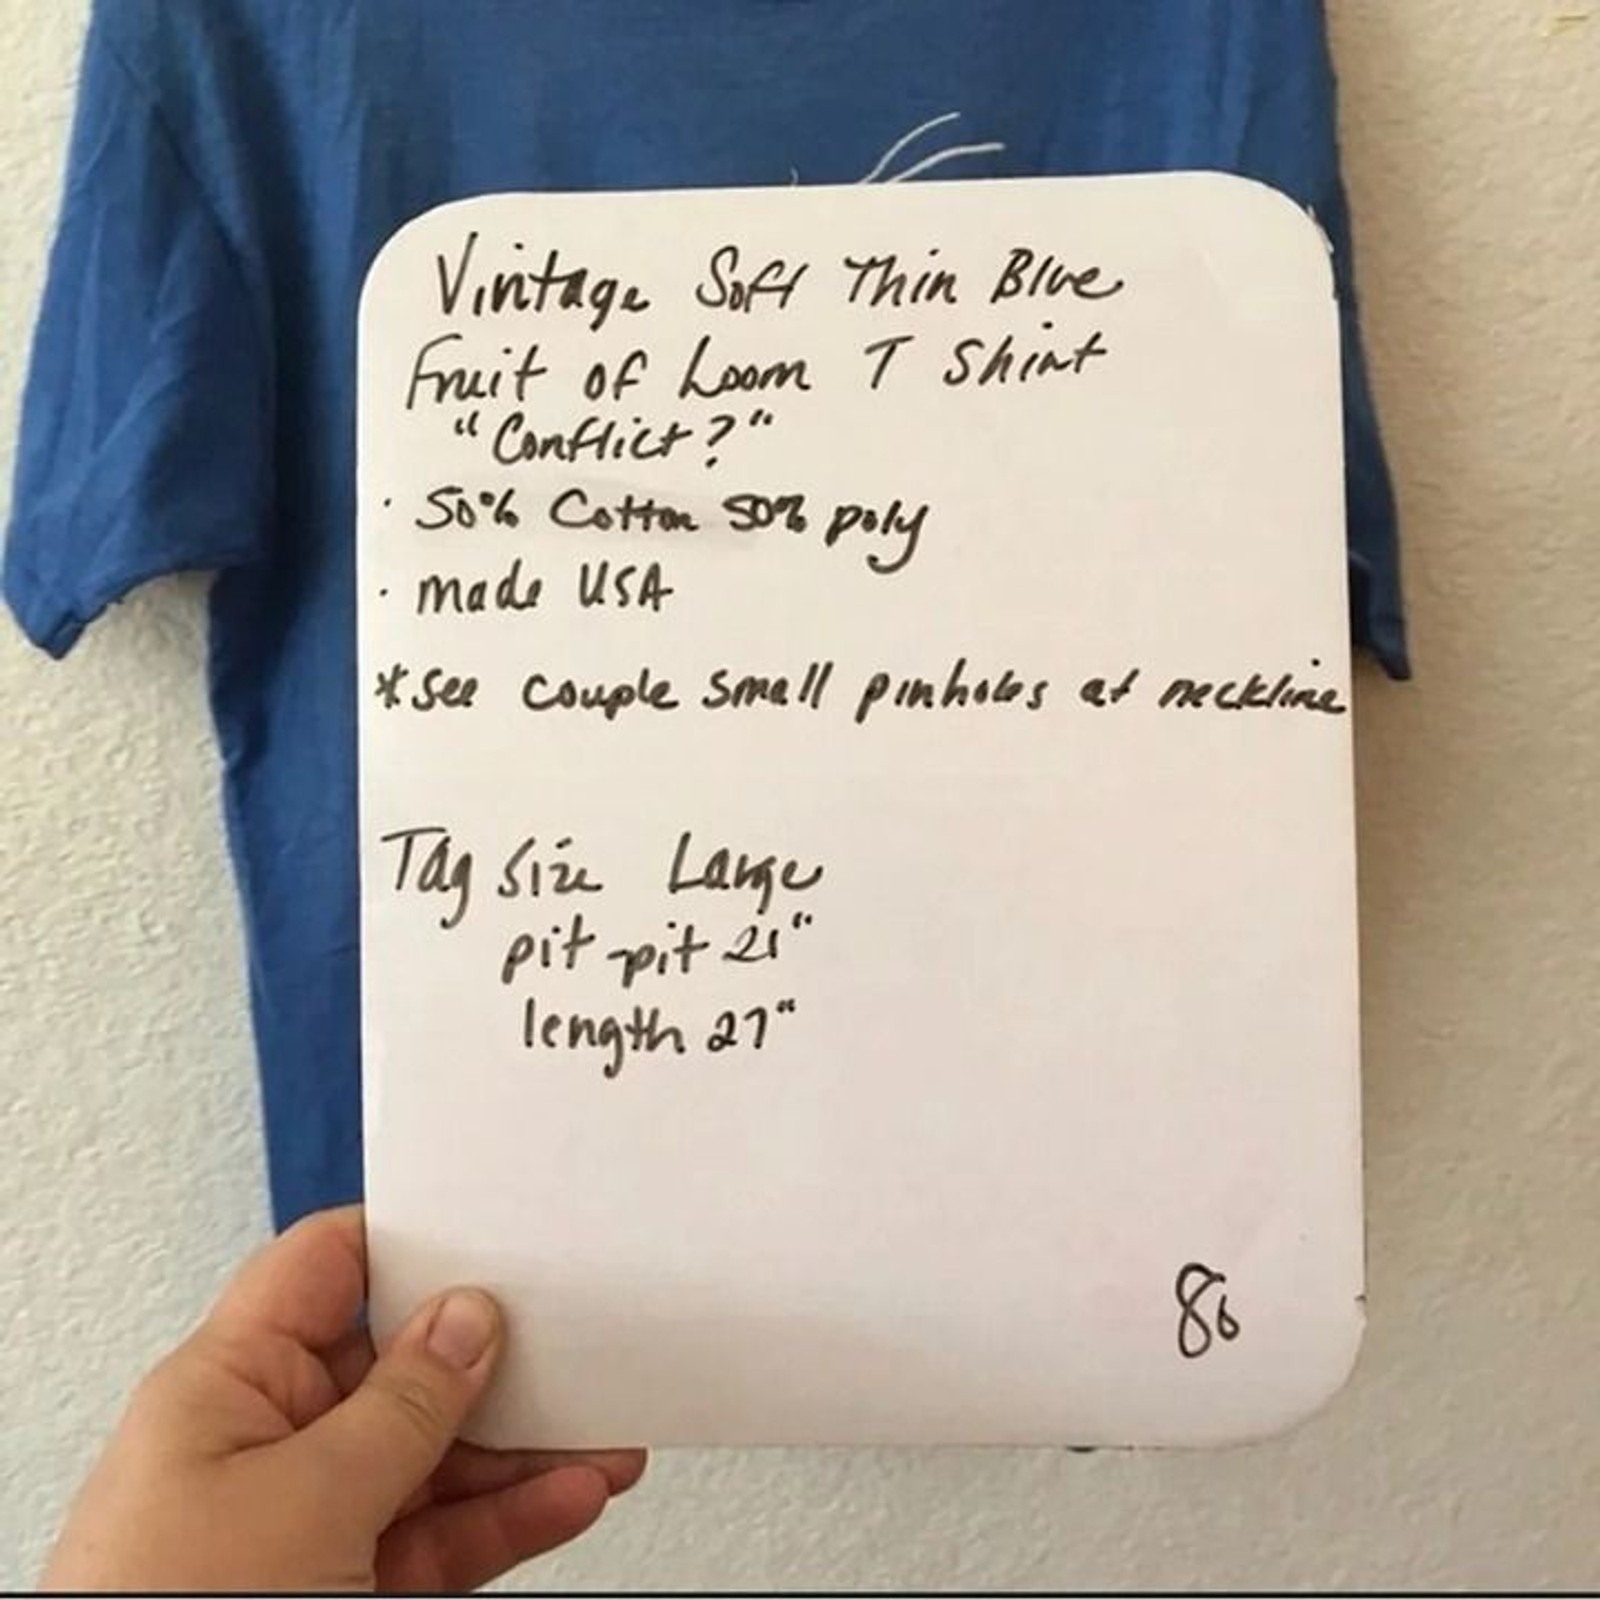 Vintage Soft Thin Blue
Fruit of Loom T Shirt
"Conflict?"
· 50% Cotton 50% poly
· made USA
*See couple small pinholes at neckline
Tag Size Large
pit-pit 21"
length 27"
86